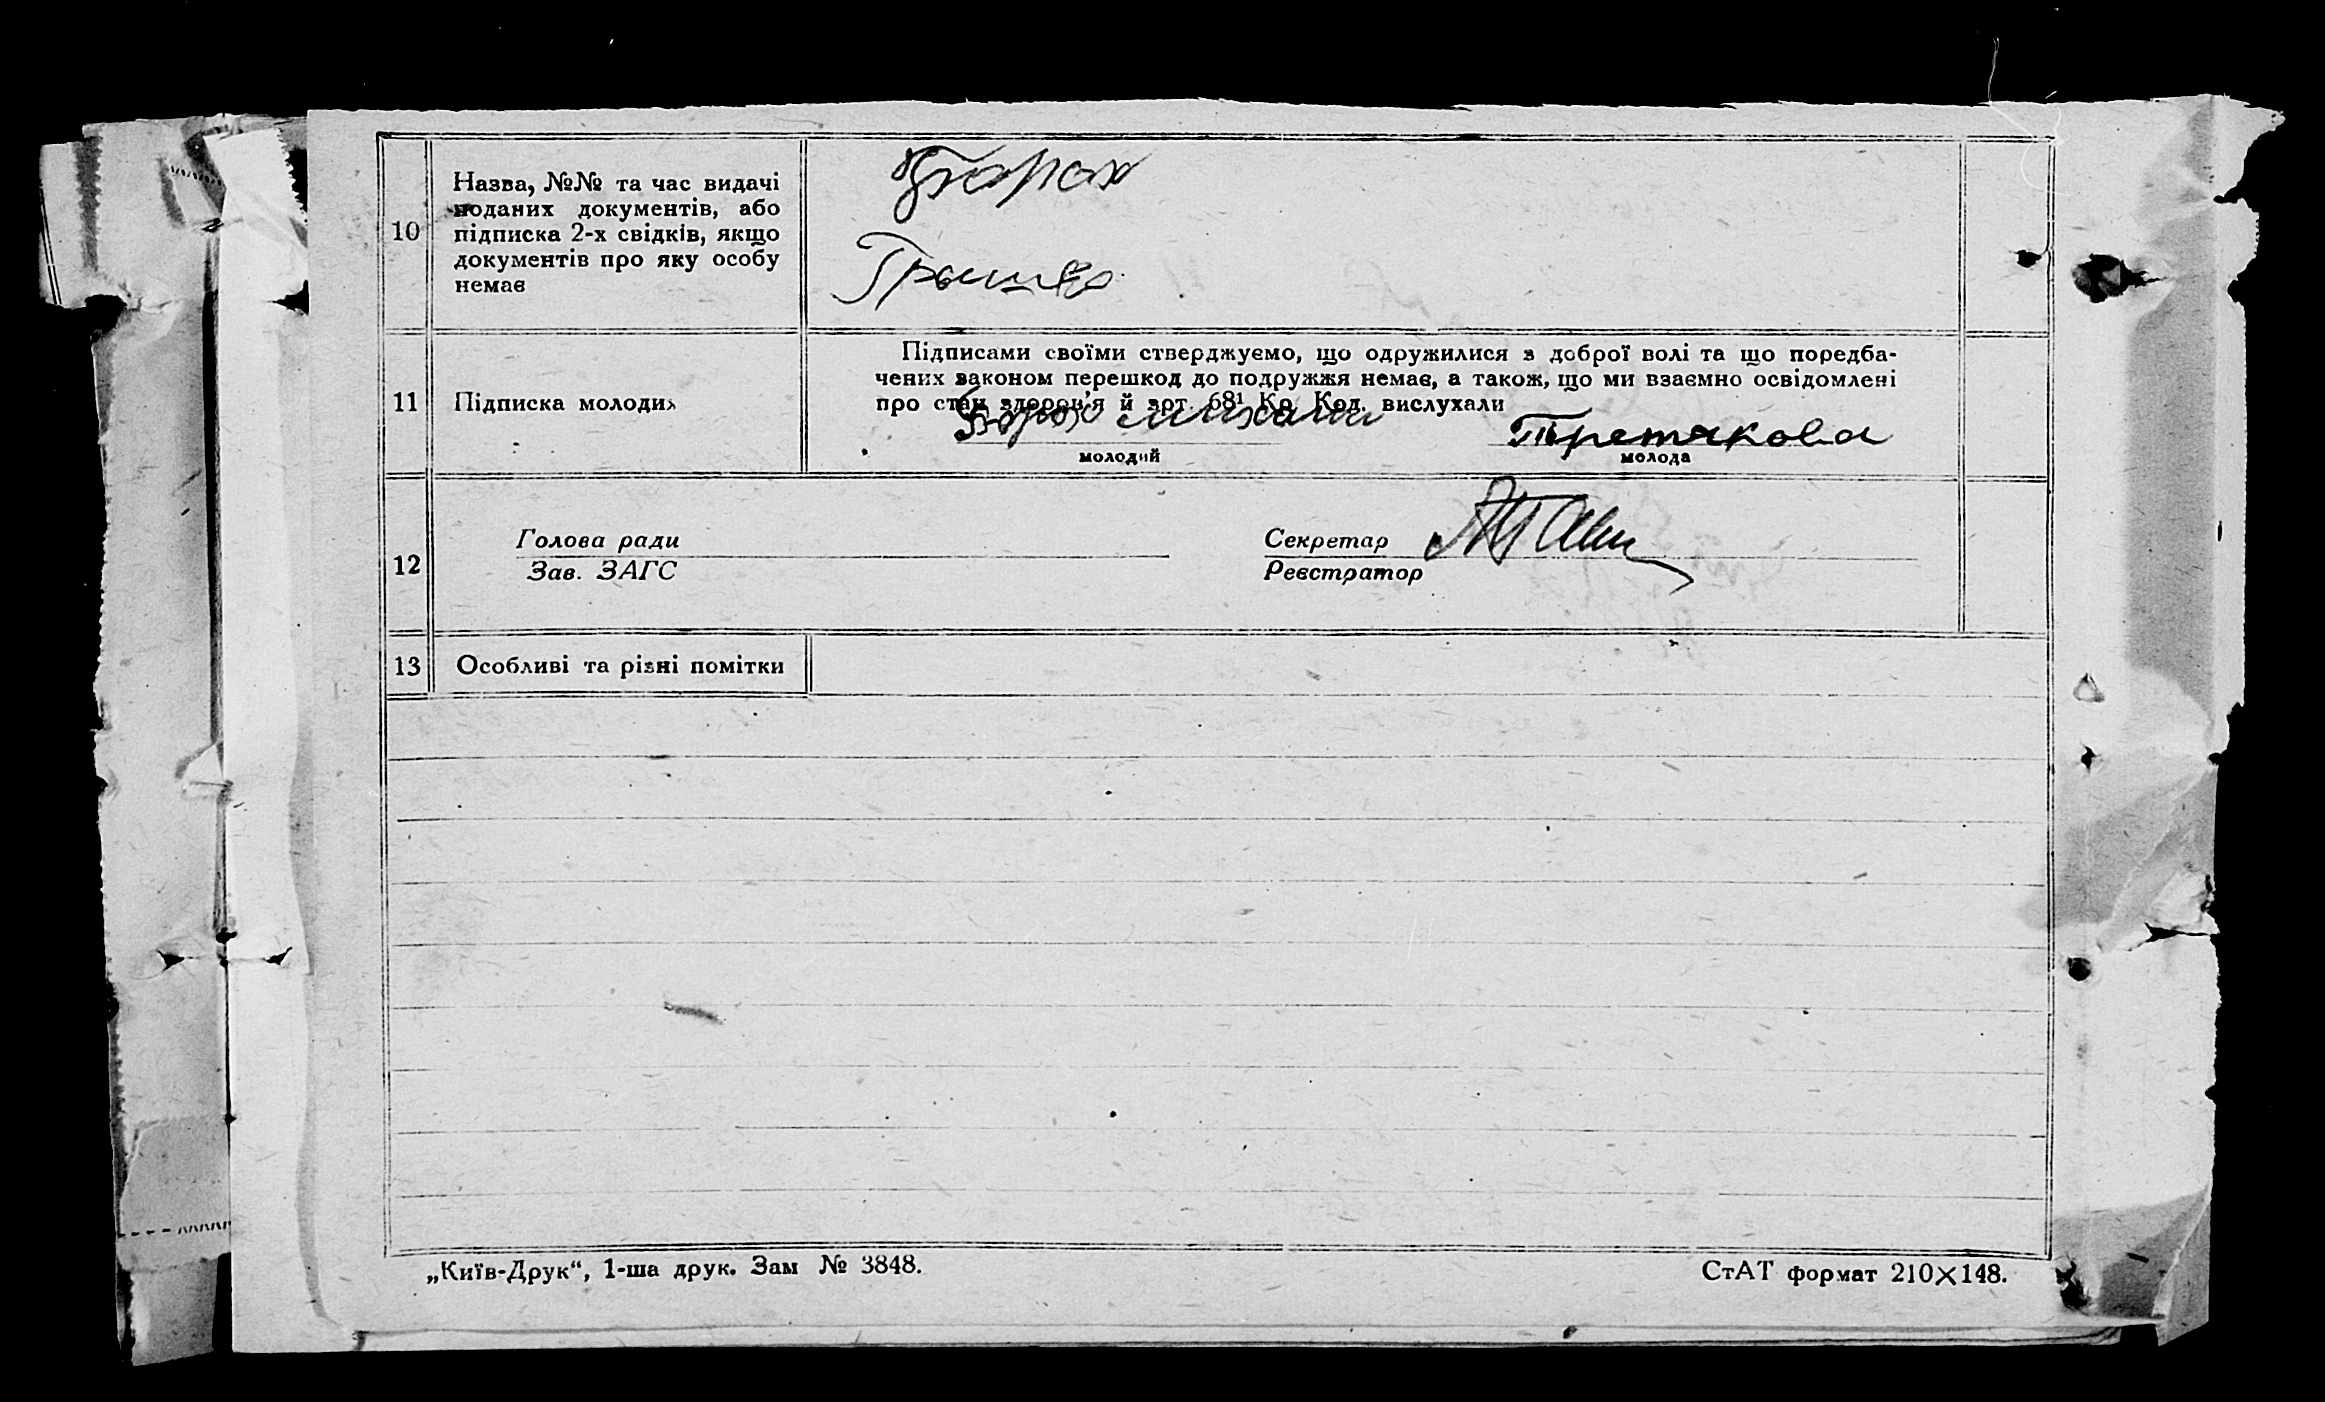 10
Назва, №№ та час видачі
поданих документів, або
підписка 2-х свідків, якщо
документів про яку особу
немає
11
Підписка молодих
Підписами своїми стверджуємо, що одружилися з доброї волі та що поредба-
чених законом перешкод до подружжя немає, а також, що ми взаємно освідомлені
про стан здоров'я й арт. 68¹ Кр. Код. вислухали
Третякова
молодий
молода
12
Голова ради
Зав. ЗАГС
Секретар
Реєстратор
13
Особливі та різні помітки
„Київ-Друк“, 1-ша друк. Зам № 3848.
СтАТ формат 210×148.